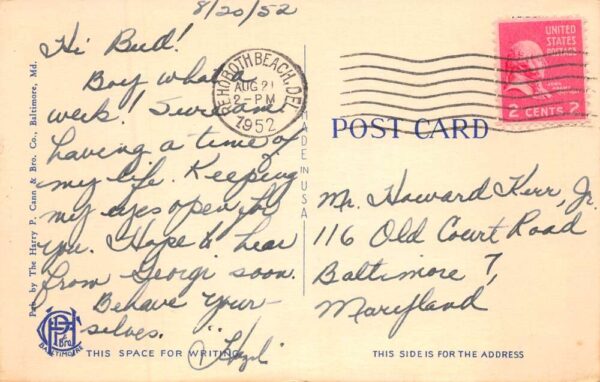 8/20/52
Hi Bud!
Boy what a
week! I'm
having a time of
my life. Keeping
my eyes open for
you. Hope to hear
from Georgi soon.
Behave your-
selves.
Pub. by The Harry P. Cann & Bro. Co., Baltimore, Md.
BALTIMORE
THIS SPACE FOR WRITING
MADE IN USA
REHOBOTH BEACH, DEL.
AUG 21
2-PM
1952
UNITED
STATES
POSTAGE
2 CENTS 2
POST CARD
Mr. Howard Kerr, Jr.
116 Old Court Road
Baltimore 7,
Maryland
THIS SIDE IS FOR THE ADDRESS